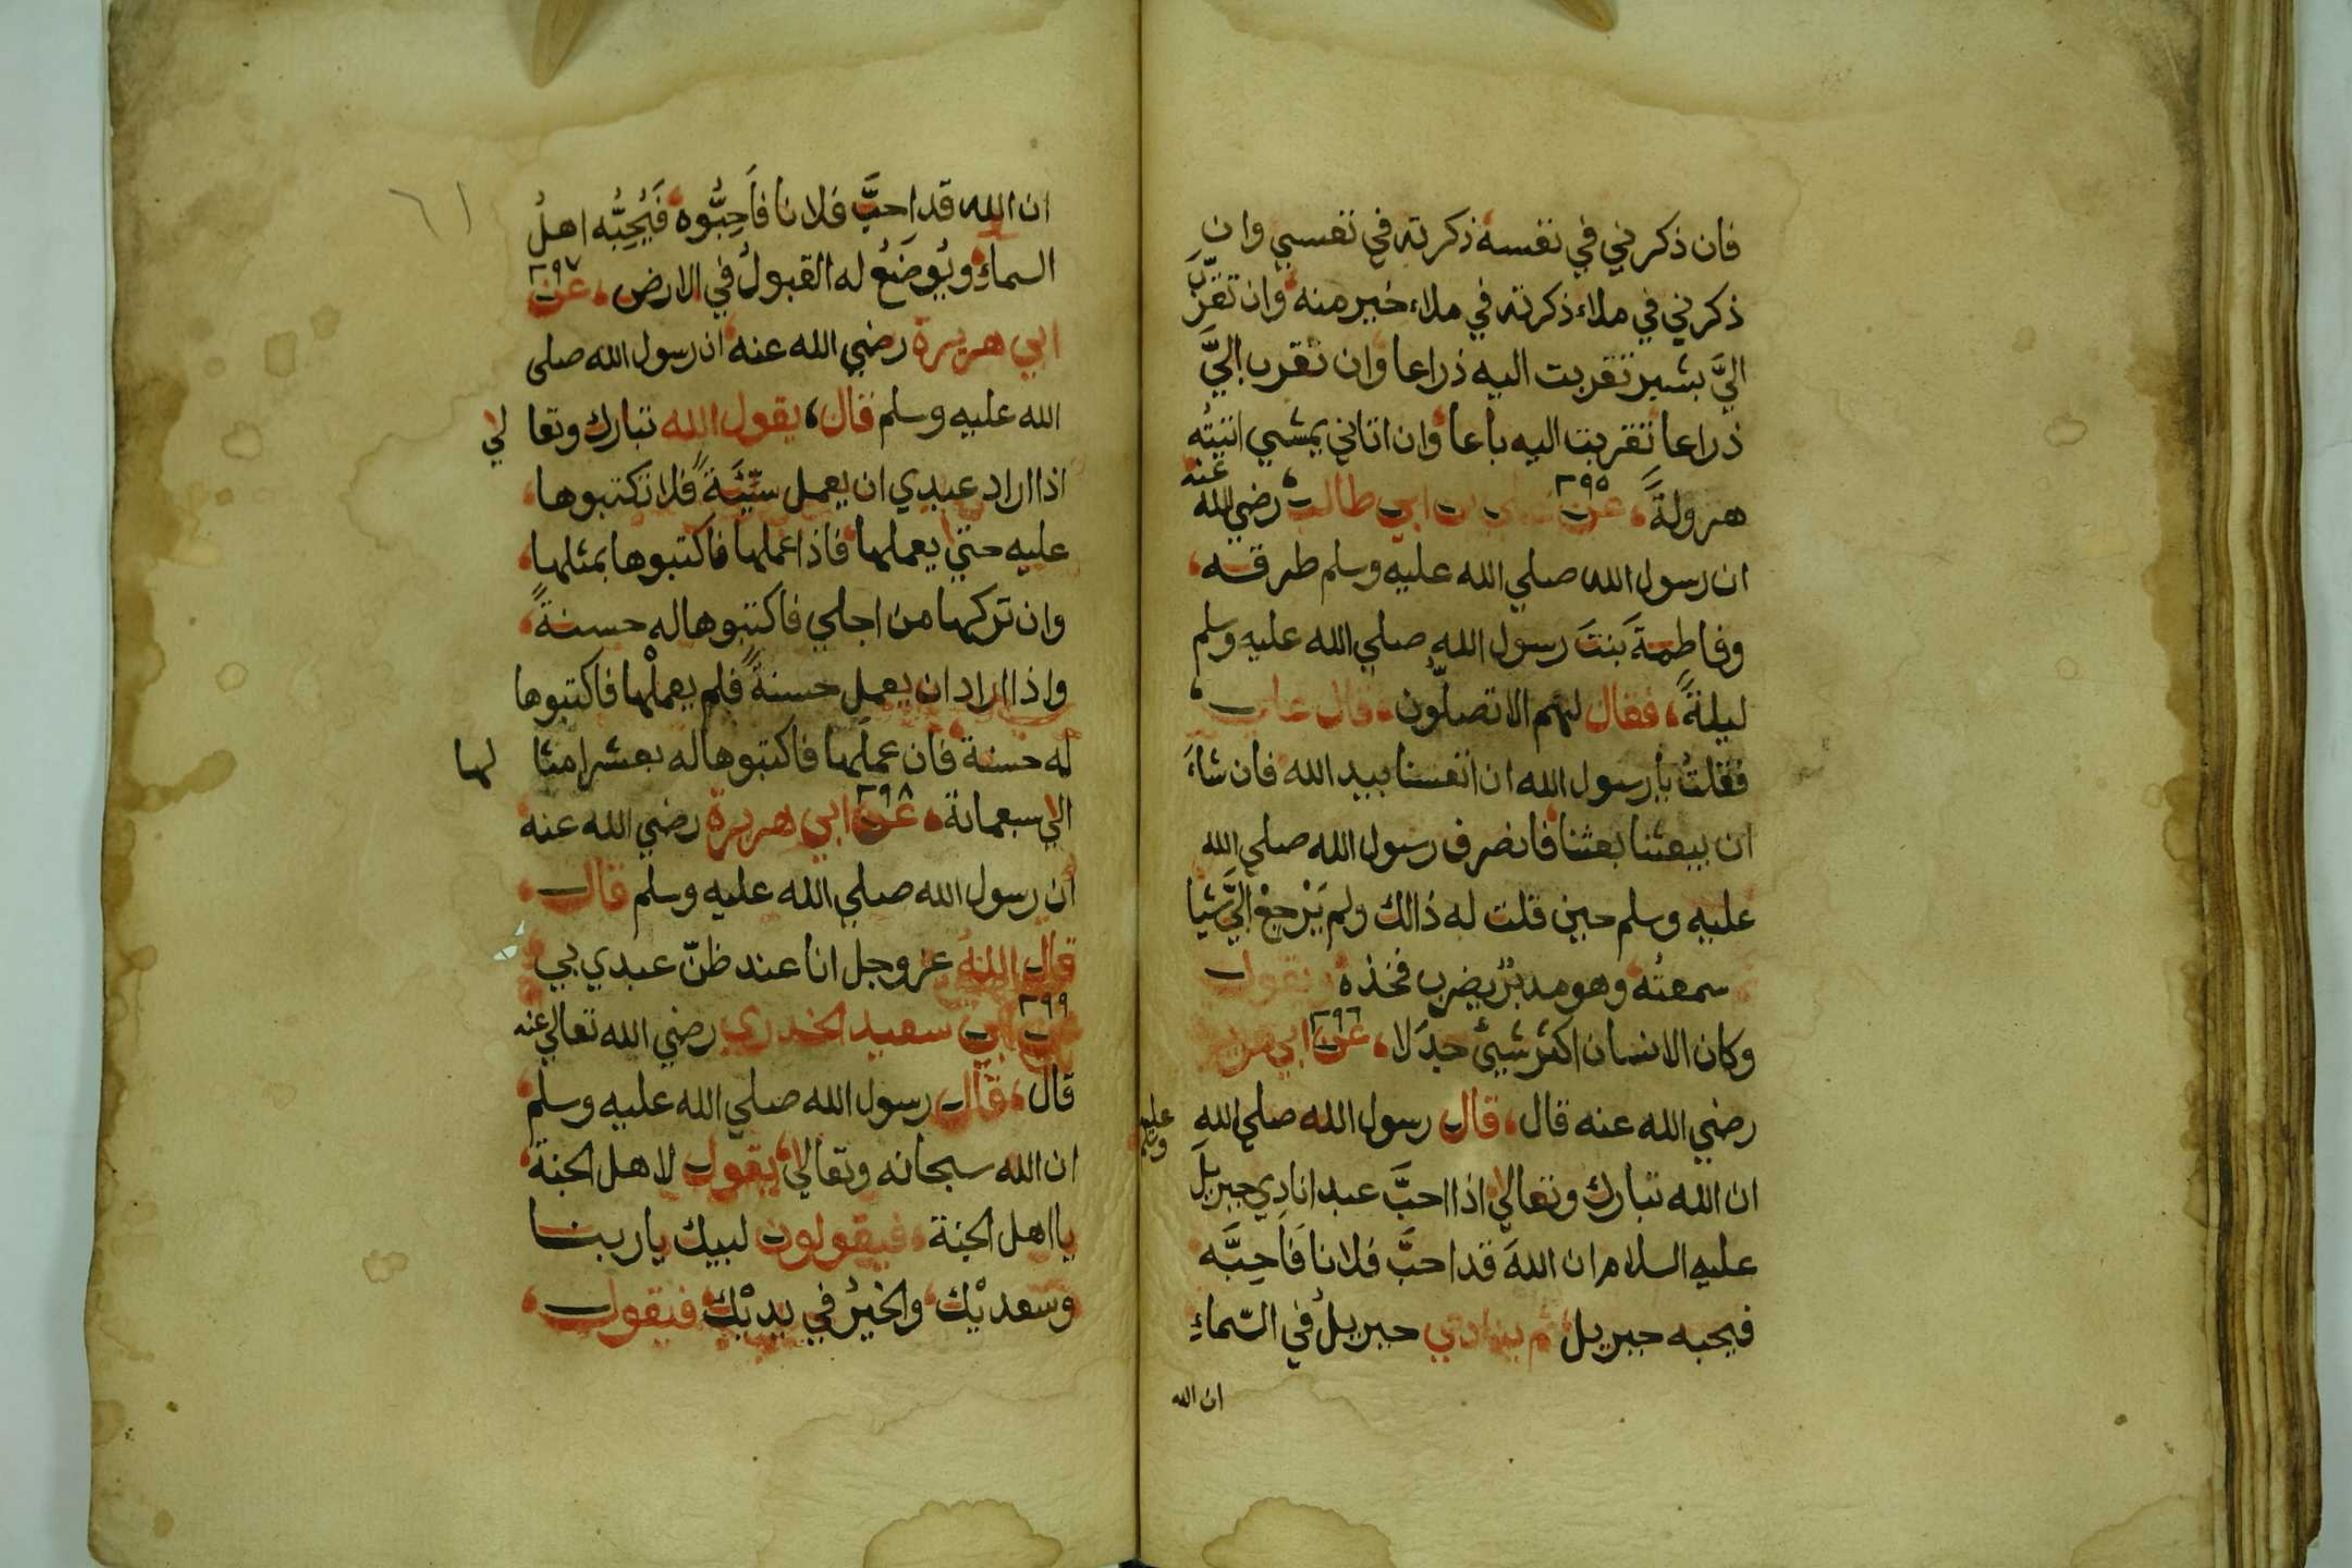 فان ذكرني في نفسه ذكرته في نفسي وان
ذكرني في ملاء ذكرته في ملاء خير منه وان تقرَّب
اليَّ بشبر تقربت اليه ذراعا وان تقرب اليَّ
ذراعا تقربت اليه باعا وان اتاني يمشي اتيتُه
هرولةً، عن ٣٩٥ علي بن ابي طالب رضي الله عنه
ان رسول الله صلي الله عليه وسلم طرقه،
وفاطمةَ بنتَ رسول الله صلي الله عليه وسلم
ليلةً، فقال لهم الا تصلُّون، قال علي
فقلتُ يا رسول الله ان انفسنا بيد الله فان شاءَ
ان يبعثنا بعثنا فانصرف رسول الله صلي الله
عليه وسلم حين قلت له ذالك ولم يَرْجِعْ اليَّ شيا
سمعتُه وهو مدبرٌ يضرب فخذه ويقول
وكان الانسان اكثرَ شيئ جدَلا، عن ٣٩٦ ابي هريرة
رضي الله عنه قال، قال رسول الله صلي الله عليه وسلم
ان الله تبارك وتعالي اذا احبَّ عبدا نادي جبريلَ
عليه السلام ان اللهَ قد احبَّ فلانا فَاَحِبَّه
فيحبه جبريل ثم ينادي جبريلُ في السّماءِ
ان الله
٦١
ان الله قد احبَّ فلانا فاَحِبُّوه فَيُحِبُّه اهلُ
السماءِ ويُوضَعُ له القبولُ في الارض، عن ٣٩٧
ابي هريرة رضي الله عنه ان رسول الله صلى
الله عليه وسلم قال، يقول الله تبارك وتعالي
اذا اراد عبدي ان يعمل سيّئَةً فلا تكتبوها،
عليه حتي يعملها فاذا عملها فاكتبوها بمثلها،
وان تركها من اجلي فاكتبوها له حسنةً،
واذا اراد ان يعمل حسنةً فلم يعملْها فاكتبوها
له حسنة فان عملَها فاكتبوها له بعشر امثالها
الي سبعمائة، عن ٣٩٨ ابي هريرة رضي الله عنه
ان رسول الله صلي الله عليه وسلم قال،
قال اللهُ عز وجل انا عند ظنّ عبدي بي
٣٩٩ عن ابي سعيد الخدري رضي الله تعالي عنه
قال، قال رسول الله صلي الله عليه وسلم
ان الله سبحانه وتعالي يقول لاهل الجنة
يا اهل الجنة، فيقولون لبيك يا ربنا
وسعديْك والخيرُ في يديْك فيقول،